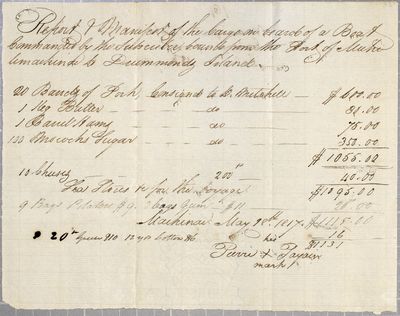 Report & Manifest of the Cargo on board of a Boat
Commanded by the Subscriber, bound from the Port of Michi
limackinac to Drummonds Island.
20 Barrels of Pork, Consignd to D. Mitchell — $ 600.00
1 Keg Butter — do 24.00
1 Barrel Hams — do 75.00
Mococks Sugar — do 350.00
$ 1055.00
10 Cheeses 200" 40.00
$1095.00
for the Voyage
9 Bags $9. " bags $11
Mackinac May 28th 1817.
16
20" 810 10 yds Cotton $6 his $1131
Pierre X Payan
mark